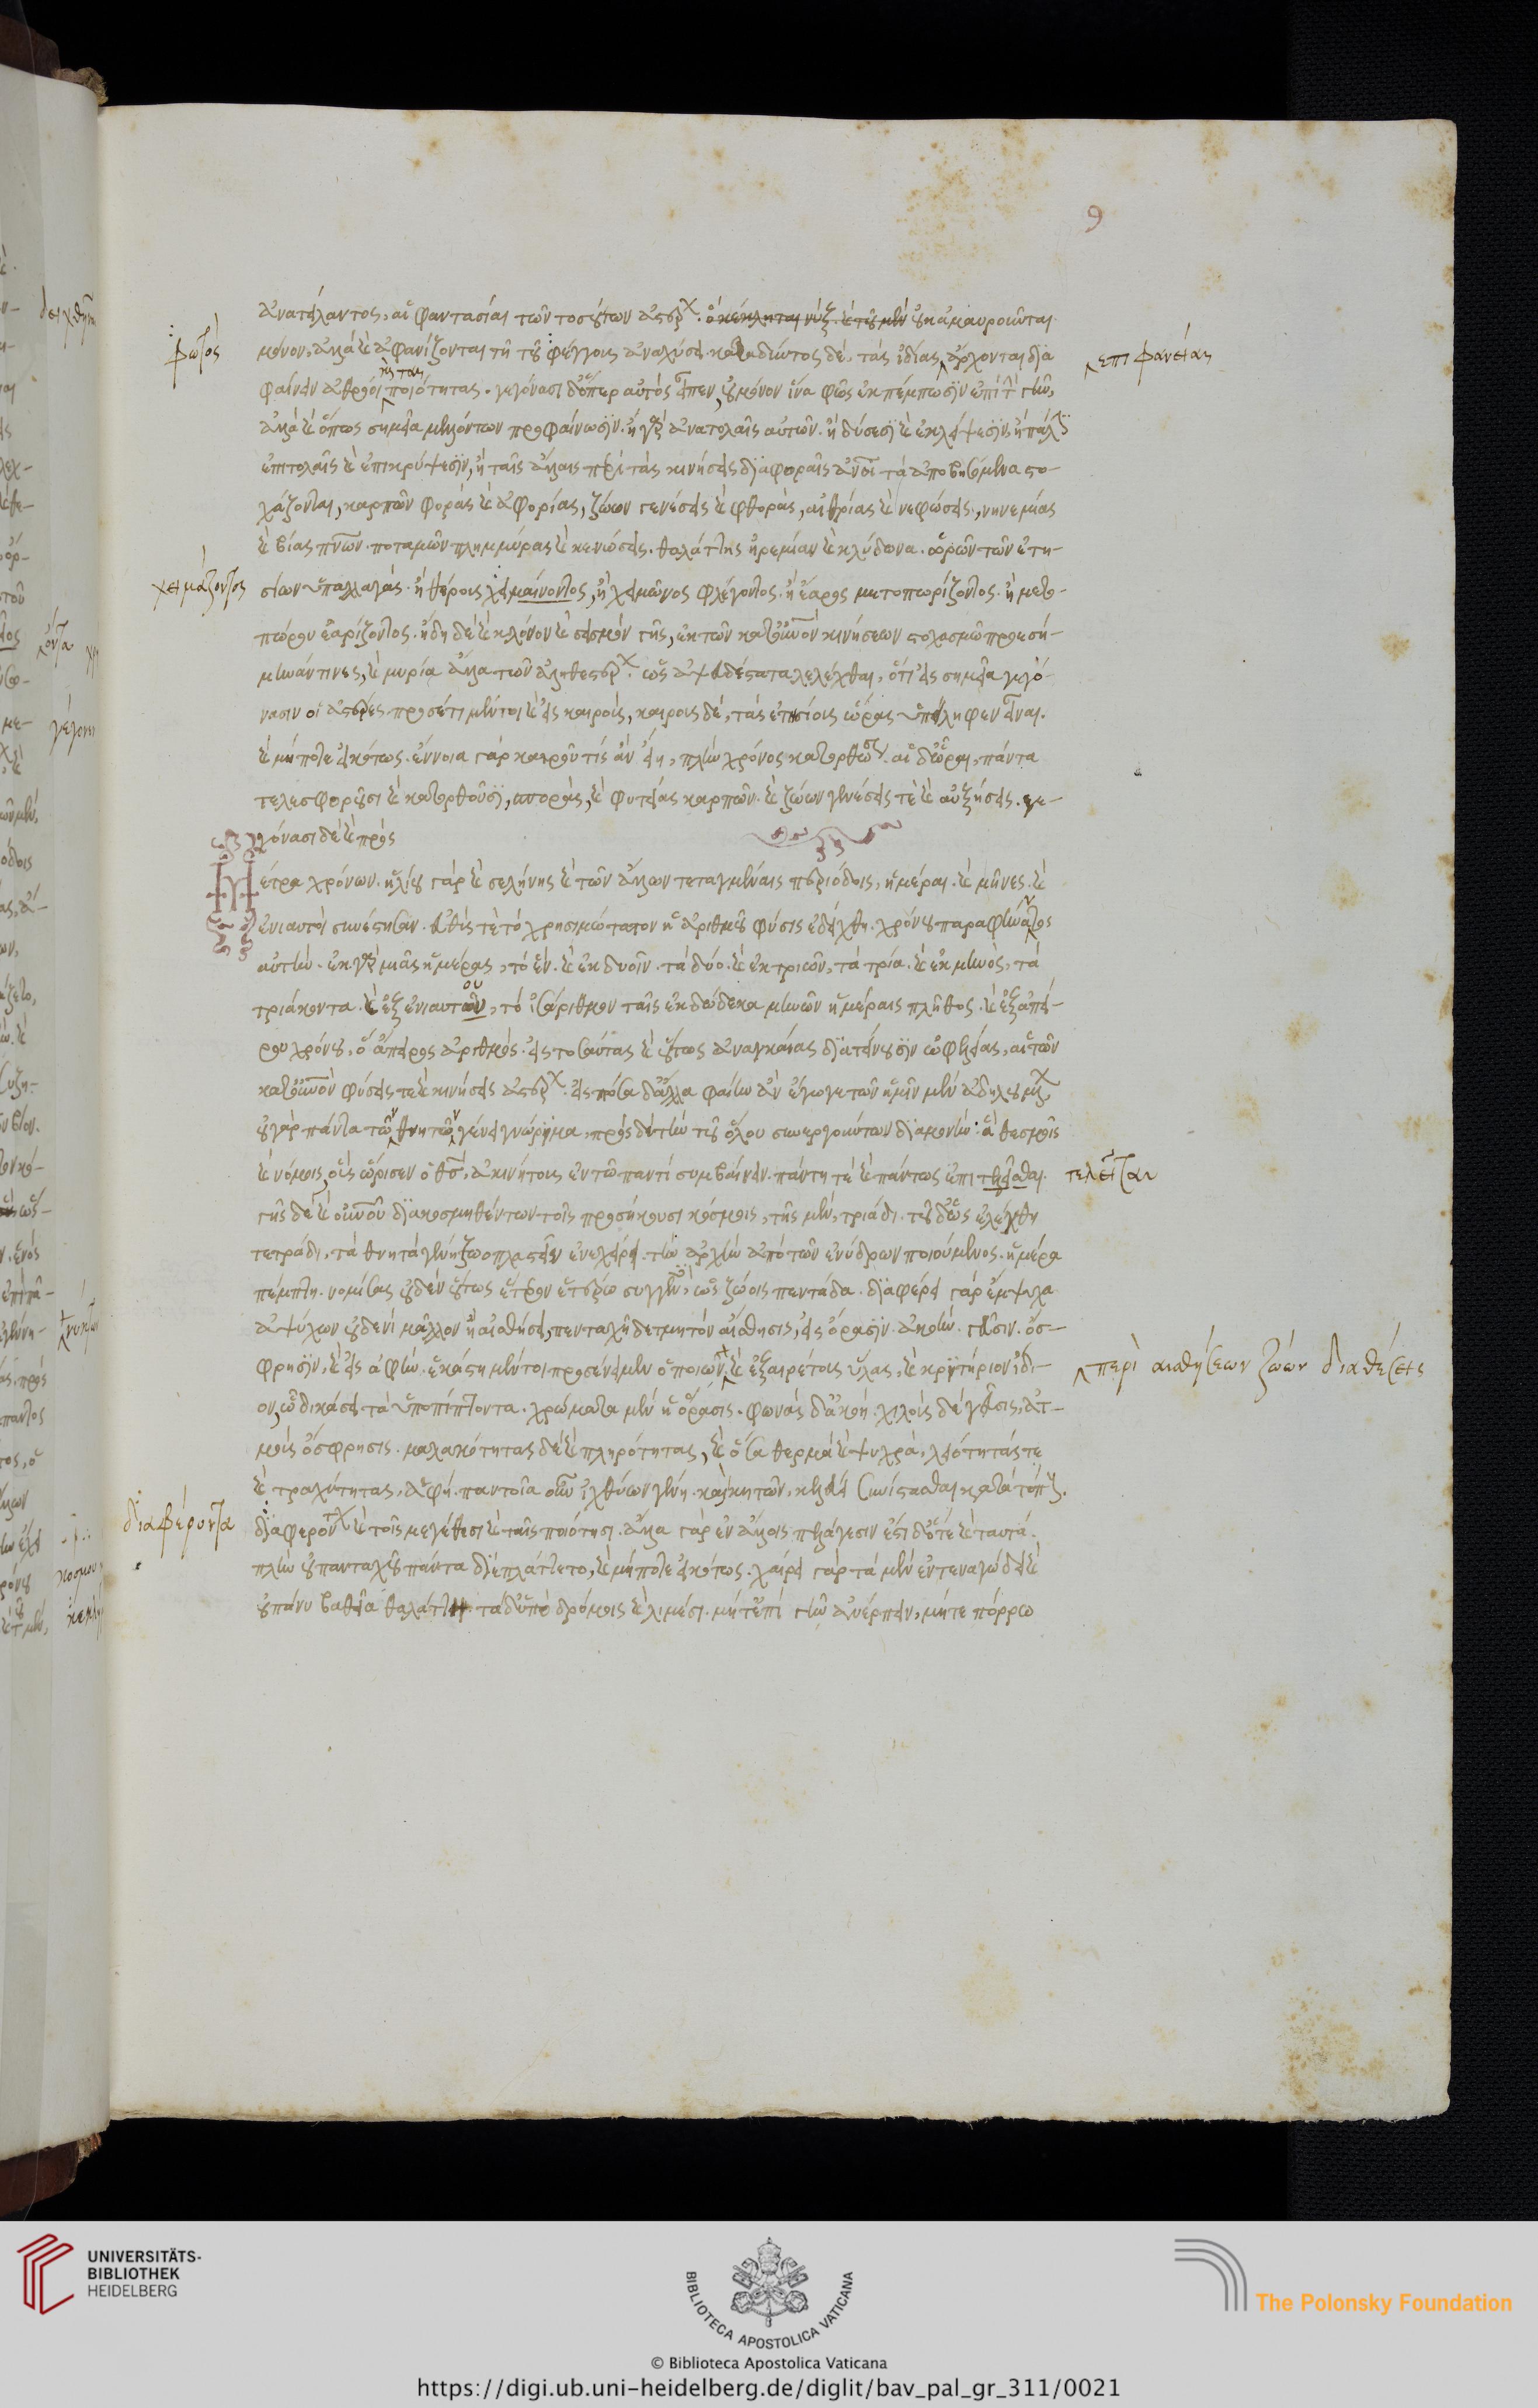 9
ἀνατείλαντος, αἱ φαντασίαι τῶν τοσούτων ἀστέρων. ὃ κέκληται νύξ. καὶ τοῦ μὲν οὐκ ἀμαυροῦνται
μόνον, ἀλλὰ καὶ ἀφανίζονται τῇ τοῦ φέγγους ἀναλύσει. καταδύντος δὲ, τὰς ἰδίας ἄρχονται δια
φωτὸς
ἐπιφανείας
φαίνειν ἀθρόοι ποιότητας. γεγόνασι δ' ὅπερ αὐτὸς εἶπεν, οὐ μόνον ἵνα φῶς ἐκπέμπωσιν ἐπὶ γῆν,
ἀλλὰ καὶ ὅπως σημεῖα μελλόντων προφαίνωσιν. ἢ γὰρ ἀνατολαῖς αὐτῶν. ἢ δύσεσι καὶ ἐκλείψεσιν, ἢ πάλιν
ἐπιτολαῖς καὶ ἐπικρύψεσιν, ἢ ταῖς ἄλλαις περὶ τὰς κινήσεις διαφοραῖς ἄνθρωποι τὰ ἀποβησόμενα στο-
χάζονται, καρπῶν φορὰς καὶ ἀφορίας, ζώων γενέσεις καὶ φθορὰς, αἰθρίας καὶ νεφώσεις, νηνεμίας
καὶ βίας πνευμάτων. ποταμῶν πλημμύρας καὶ κενώσεις. θαλάττης ἠρεμίαν καὶ κλύδωνα. ὡρῶν τῶν ἐτη-
σίων ὑπαλλαγὰς. ἢ θέρους χειμαίνοντος, ἢ χειμῶνος φλέγοντος. ἢ ἔαρος μετοπωρίζοντος. ἢ μετο-
χειμάζοντος
πώρου ἐαρίζοντος. ἤδη δὲ καὶ κλόνον καὶ σεισμὸν γῆς, ἐκ τῶν κατ' οὐρανὸν κινήσεων στοχασμῷ προεσή-
μηνάν τινες, καὶ μυρία ἄλλα τῶν ἀηθεστέρων. ὡς ἀψευδέστατα λελέχθαι, ὅτι εἰς σημεῖα γεγό-
νασιν οἱ ἀστέρες. προσέτι μέντοι καὶ εἰς καιροὺς, καιροὺς δὲ, τὰς ἐτησίους ὥρας ὑπείληφεν εἶναι.
καὶ μήποτε εἰκότως. ἔννοια γὰρ καιροῦ τίς ἂν εἴη, πλὴν χρόνος κατορθώσεως. αἱ δ' ὧραι, πάντα
τελεσφοροῦσι καὶ κατορθοῦσι, σπορὰς, καὶ φυτείας καρπῶν. καὶ ζώων γενέσεις τὲ καὶ αὐξήσεις. γε-
γόνασι δὲ καὶ πρὸς
Μέτρα χρόνων. ἡλίου γὰρ καὶ σελήνης καὶ τῶν ἄλλων τεταγμέναις περιόδοις, ἡμέραι. καὶ μῆνες. καὶ
ἐνιαυτοὶ συνέστησαν. εὐθύς τε τὸ χρησιμώτατον ἡ ἀριθμοῦ φύσις ἐδείχθη. χρόνου παραφήναντος
αὐτὴν. ἐκ γὰρ μιᾶς ἡμέρας, τὸ ἕν. καὶ ἐκ δυοῖν. τὰ δύο. καὶ ἐκ τριῶν, τὰ τρία. καὶ ἐκ μηνὸς, τὰ
τριάκοντα. καὶ ἐξ ἐνιαυτῶν, τὸ ἰσάριθμον ταῖς ἐκ δώδεκα μηνῶν ἡμέραις πλῆθος. καὶ ἐξ ἀπεί-
ρου χρόνου, ὁ ἄπειρος ἀριθμός. εἰς τοσαύτας καὶ οὕτως ἀναγκαίας διατείνουσιν ὠφελείας, αἱ τῶν
κατ' οὐρανὸν φύσεις τε καὶ κινήσεις ἀστέρων. εἰς πόσα δ' ἄλλα φαίην ἂν ἔγωγε τῶν ἡμῖν μὲν ἀδηλουμένων,
οὐ γὰρ πάντα τῷ θνητῷ γένει γνώριμα, πρὸς δὲ τὴν τοῦ ὅλου συνεργούντων διαμονὴν. ἃ θεσμοῖς
καὶ νόμοις, οὓς ὥρισεν ὁ θεὸς, ἀκινήτους ἐν τῷ παντὶ συμβαίνειν. πάντη τὲ καὶ πάντως ἐπιτελεῖσθαι.
τελεῖται
γῆς δὲ καὶ οὐρανοῦ διακοσμηθέντων τοῖς προσήκουσι κόσμοις, τῆς μὲν, τριάδι. τοῦ δ' ὡς ἐλέχθη
τετράδι, τὰ θνητὰ γένη ζωοπλαστεῖν ἐνεχείρει. τὴν ἀρχὴν ἀπὸ τῶν ἐνύδρων ποιούμενος. ἡμέρᾳ
πέμπτῃ. νομίσας οὐδὲν οὕτως ἕτερον ἑτέρῳ συγγενὲς, ὡς ζώοις πεντάδα. διαφέρει γὰρ ἔμψυχα
ἀψύχων οὐδενὶ μᾶλλον ἢ αἰσθήσει, πενταχῆ δὲ τμητὸν αἴσθησις, εἰς ὅρασιν. ἀκοὴν. γεῦσιν. ὄσ-
φρησιν. καὶ εἰς ἁφήν. ἑκάστῃ μέντοι προσένειμεν ὁ ποιῶν καὶ ἐξαιρέτους ὕλας, καὶ κριτήριον ἴδι-
περὶ αἰσθήσεων ζώων διαθέσεις
ον, ᾧ δικάσει τὰ ὑποπίπτοντα. χρώματα μὲν ἡ ὅρασις. φωνὰς δ' ἀκοή. χυλοὺς δὲ γεῦσις, ἀτ-
μοὺς ὄσφρησις. μαλακότητας δὲ καὶ σκληρότητας, καὶ ὅσα θερμὰ καὶ ψυχρὰ, λειότητάς τε
καὶ τραχύτητας, ἁφή. παντοῖα οὖν ἰχθύων γένη. καὶ κητῶν, κελεύει συνίστασθαι κατὰ τόπους.
διαφέροντα καὶ τοῖς μεγέθεσι καὶ ταῖς ποιότησι. ἄλλα γὰρ ἐν ἄλλοις πελάγεσιν ἔστι δ' ὅτε καὶ ταυτά.
διαφέροντα
πλὴν οὐ πανταχοῦ πάντα διεπλάττετο, καὶ μήποτε εἰκότως. χαίρει γὰρ τὰ μὲν ἐν τεναγώδει καὶ
οὐ πάνυ βαθείᾳ θαλάττῃ. τὰ δ' ὑπὸ δρόμοις καὶ λιμέσι. μήτ' ἐπὶ γῆν ἀνέρπειν, μήτε πόρρω
UNIVERSITÄTS-
BIBLIOTHEK
HEIDELBERG
BIBLIOTECA APOSTOLICA VATICANA
The Polonsky Foundation
© Biblioteca Apostolica Vaticana
https://digi.ub.uni-heidelberg.de/diglit/bav_pal_gr_311/0021